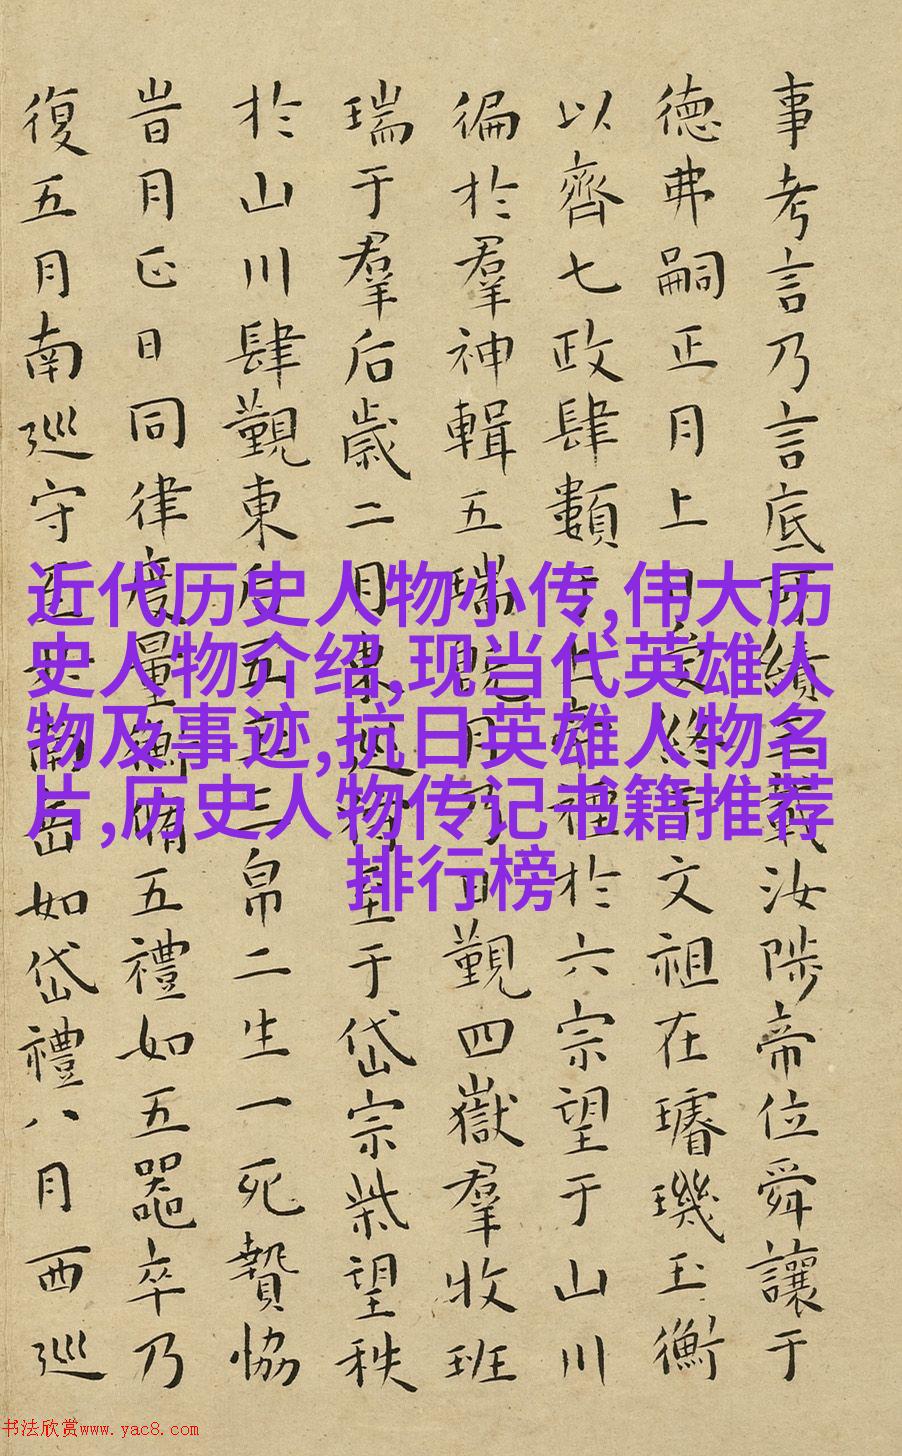 事考言乃言底可績三載汝陟帝位舜讓于
德弗嗣正月上日受終于文祖在璿璣玉衡
以齊七政肆類于上帝禋於六宗望于山川
徧於羣神輯五瑞既月乃日覲四嶽羣牧班
瑞于羣后歲二月東巡狩至于岱宗柴望秩
於山川肆覲東后五玉三帛二生一死贄協
旹月正日同律度量衡脩五禮如五器卒乃
復五月南巡守至于南岳如岱禮八月西巡
近代历史人物小传,伟大历
史人物介绍,现当代英雄人
物及事迹,抗日英雄人物名
片,历史人物传记书籍推荐
排行榜
书法欣赏www.yac8.com